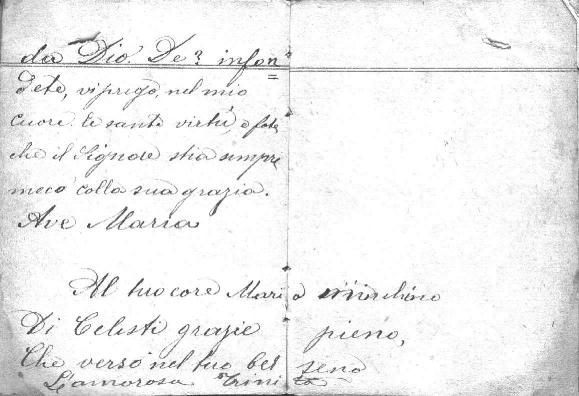 da Dio. Deh infon=
dete, vi prego, nel mio
cuore le sante virtù, e fate
che il Signore stia sempre
meco colla sua grazia.
Ave Maria
Al tuo core Maria m'inchino
Di Celesti grazie pieno,
Che versò nel tuo bel seno
L'amorosa Trinità